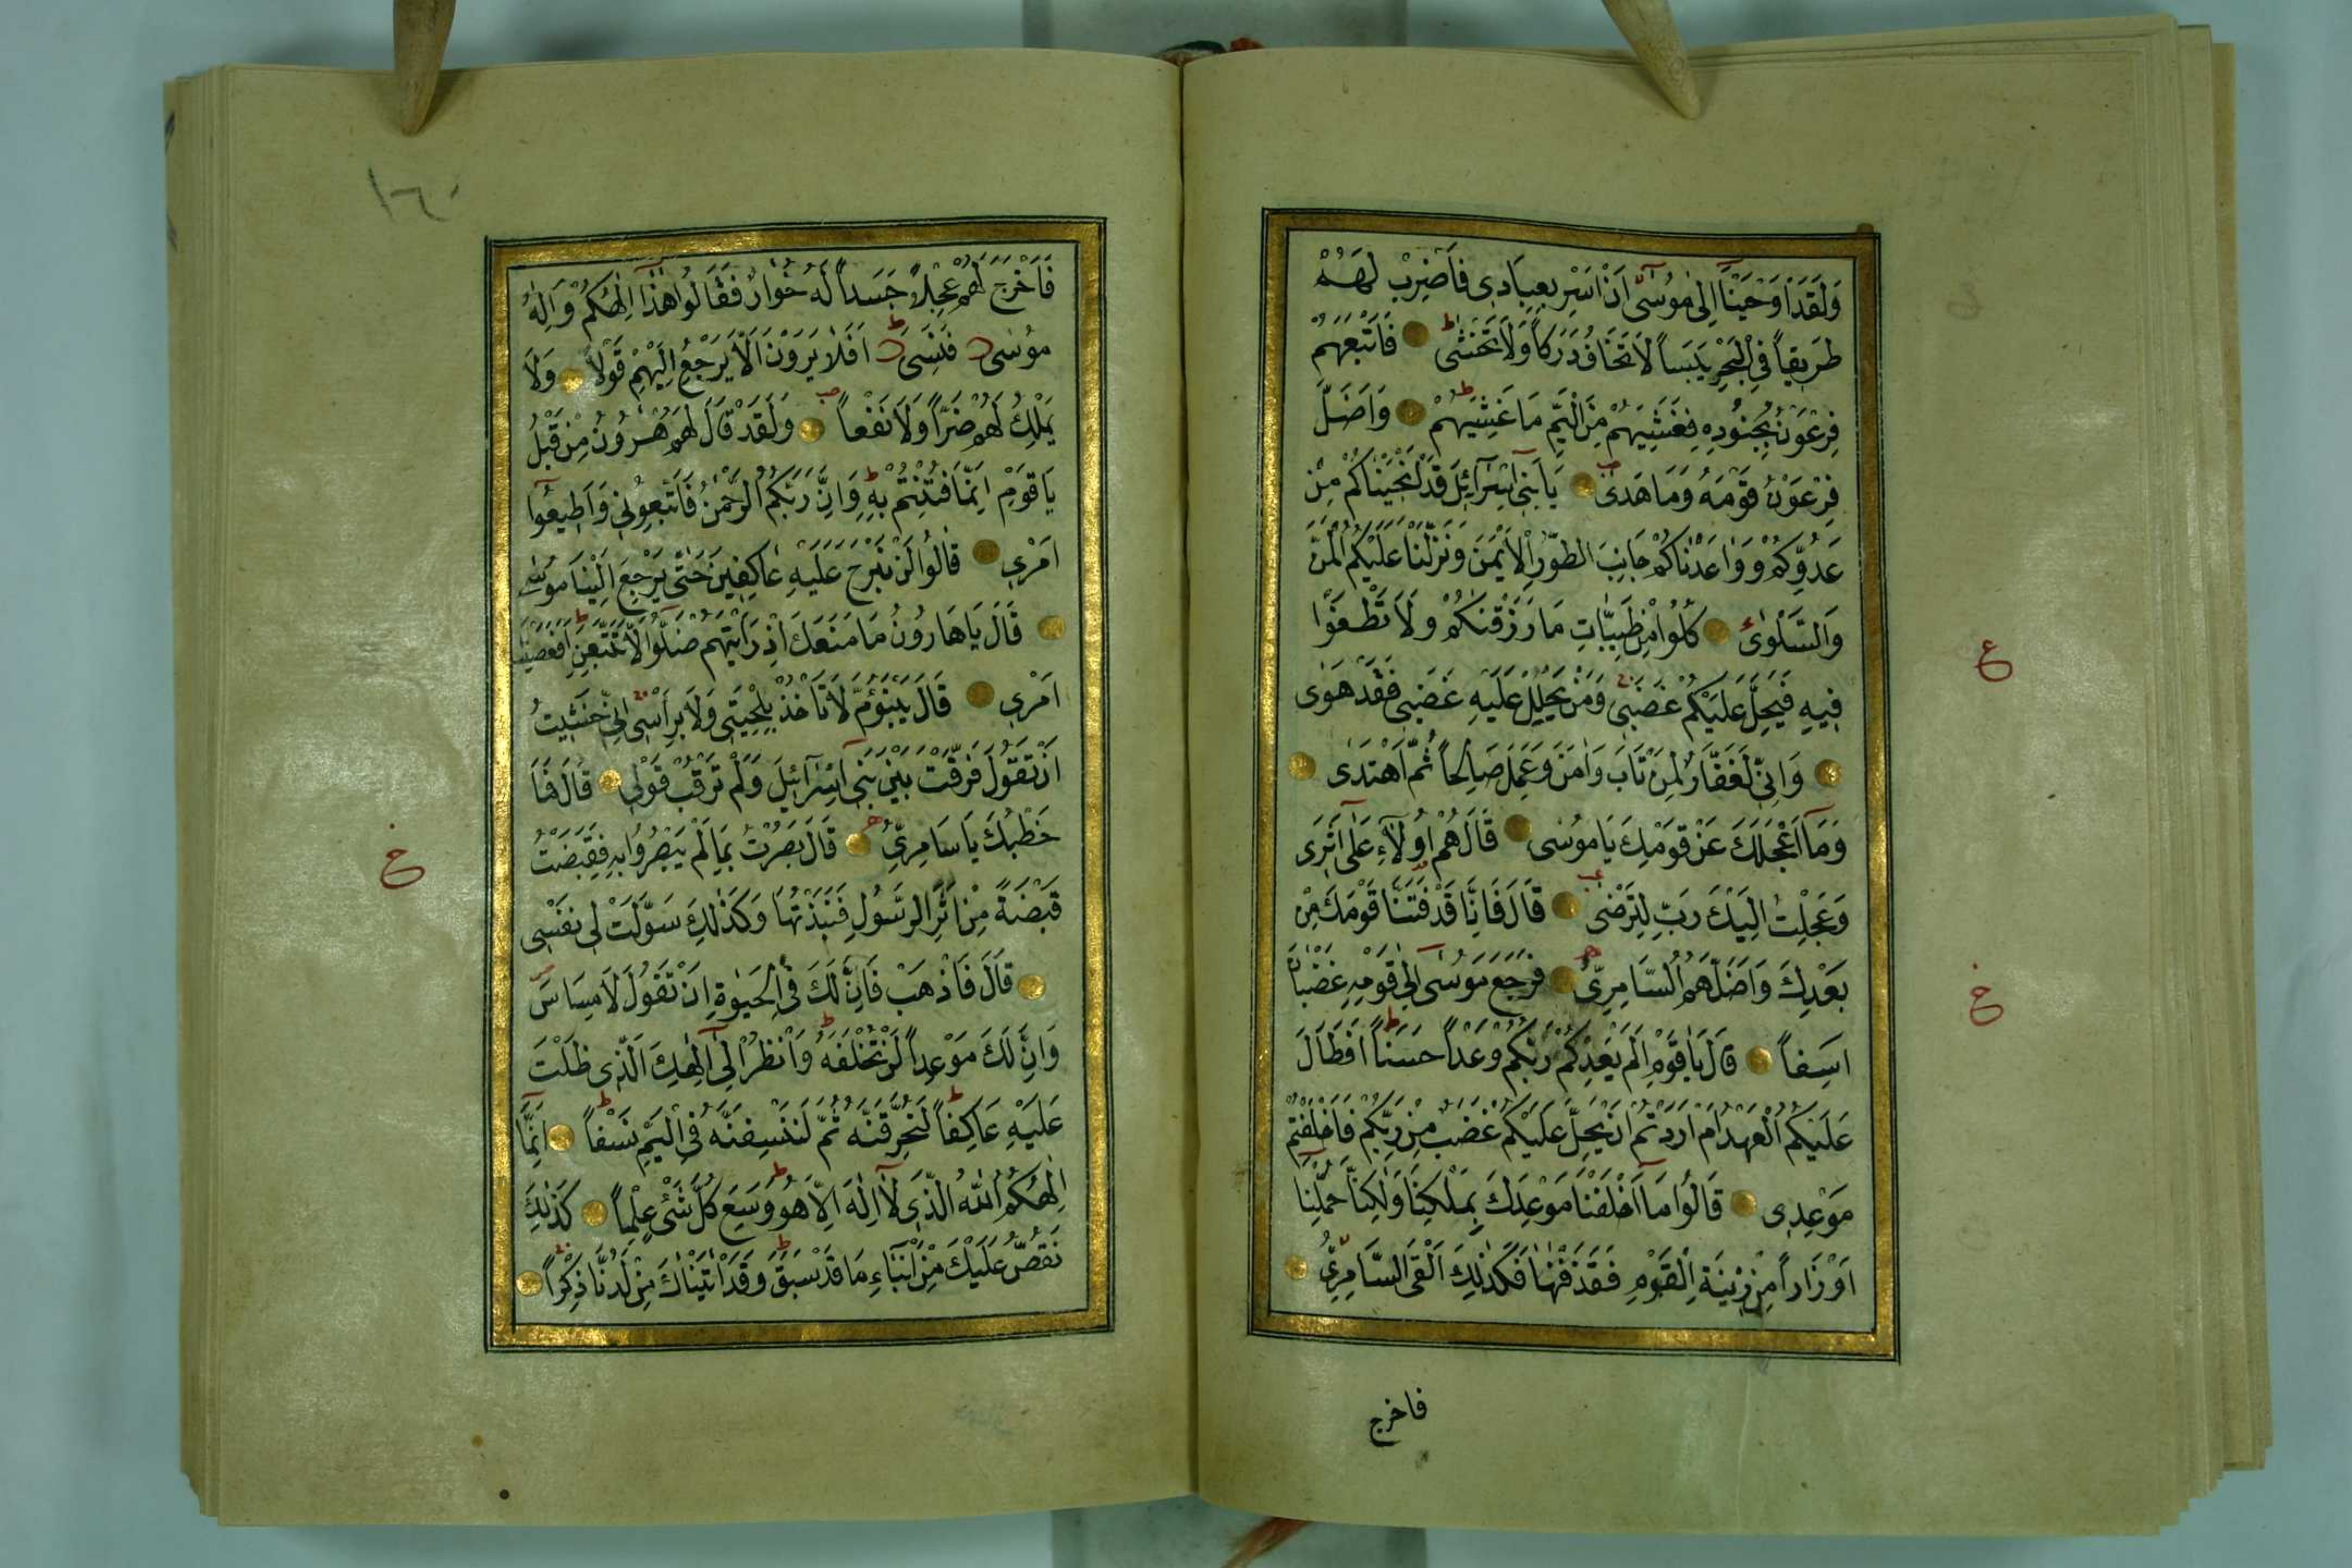 وَلَقَدْ اَوْحَيْنَٓا اِلٰى مُوسٰٓى اَنْ اَسْرِ بِعِبَادِى فَاضْرِبْ لَهُمْ
طَرِيقاً فِى الْبَحْرِ يَبَساً لَا تَخَافُ دَرَكاً وَلَا تَخْشٰى ط فَاَتْبَعَهُمْ
فِرْعَوْنُ بِجُنُودِهِ فَغَشِيَهُمْ مِنَ الْيَمِّ مَا غَشِيَهُمْ ط وَاَضَلَّ
فِرْعَوْنُ قَوْمَهُ وَمَا هَدٰى يَا بَنِى اِسْرَٓائِلَ قَدْ اَنْجَيْنَاكُمْ مِنْ
عَدُوِّكُمْ وَوٰاعَدْنَاكُمْ جَانِبَ الطُّورِ الْاَيْمَنَ وَنَزَّلْنَا عَلَيْكُمُ الْمَنَّ
وَالسَّلْوٰى كُلُوا مِنْ طَيِّبَاتِ مَا رَزَقْنٰكُمْ وَلَا تَطْغَوْا
فِيهِ فَيَحِلَّ عَلَيْكُمْ غَضَبِى وَمَنْ يَحْلِلْ عَلَيْهِ غَضَبِى فَقَدْ هَوٰى
وَاِنِّى لَغَفَّارٌ لِمَنْ تَابَ وَاٰمَنَ وَعَمِلَ صَالِحاً ثُمَّ اهْتَدٰى
وَمَٓا اَعْجَلَكَ عَنْ قَوْمِكَ يَا مُوسٰى قَالَ هُمْ اُولَٓاءِ عَلٰٓى اَثَرِى
وَعَجِلْتُ اِلَيْكَ رَبِّ لِتَرْضٰى قَالَ فَاِنَّا قَدْ فَتَنَّا قَوْمَكَ مِنْ
بَعْدِكَ وَاَضَلَّهُمُ السَّامِرِىُّ فَرَجَعَ مُوسٰٓى اِلٰى قَوْمِهِ غَضْبَانَ
اَسِفاً قَالَ يَا قَوْمِ اَلَمْ يَعِدْكُمْ رَبُّكُمْ وَعْداً حَسَناً ط اَفَطَالَ
عَلَيْكُمُ الْعَهْدُ اَمْ اَرَدْتُمْ اَنْ يَحِلَّ عَلَيْكُمْ غَضَبٌ مِنْ رَبِّكُمْ فَاَخْلَفْتُمْ
مَوْعِدِى قَالُوا مَٓا اَخْلَفْنَا مَوْعِدَكَ بِمَلْكِنَا وَلٰكِنَّا حُمِّلْنَٓا
اَوْزَاراً مِنْ زِينَةِ الْقَوْمِ فَقَذَفْنٰهَا فَكَذٰلِكَ اَلْقَى السَّامِرِىُّ
ع
خ
فاخرج
١٦٠
فَاَخْرَجَ لَهُمْ عِجْلاً جَسَداً لَهُ خُوَارٌ فَقَالُوا هٰذَٓا اِلٰهُكُمْ وَاِلٰهُ
مُوسٰى فَنَسِىَ ط اَفَلَا يَرَوْنَ اَلَّا يَرْجِعُ اِلَيْهِمْ قَوْلاً وَلَا
يَمْلِكُ لَهُمْ ضَرًّا وَلَا نَفْعاً وَلَقَدْ قَالَ لَهُمْ هٰرُونُ مِنْ قَبْلُ
يَا قَوْمِ اِنَّمَا فُتِنْتُمْ بِهِ ط وَاِنَّ رَبَّكُمُ الرَّحْمٰنُ فَاتَّبِعُونِى وَاَطِيعُٓوا
اَمْرِى قَالُوا لَنْ نَبْرَحَ عَلَيْهِ عَاكِفِينَ حَتّٰى يَرْجِعَ اِلَيْنَا مُوسٰى
قَالَ يَا هَارُونُ مَا مَنَعَكَ اِذْ رَاَيْتَهُمْ ضَلُّوا اَلَّا تَتَّبِعَنِ ط اَفَعَصَيْتَ
اَمْرِى قَالَ يَبْنَؤُمَّ لَا تَاْخُذْ بِلِحْيَتِى وَلَا بِرَاْسِى اِنِّى خَشِيتُ
اَنْ تَقُولَ فَرَّقْتَ بَيْنَ بَنِٓى اِسْرَٓائِيلَ وَلَمْ تَرْقُبْ قَوْلِى قَالَ فَمَا
خَطْبُكَ يَا سَامِرِىُّ قَالَ بَصُرْتُ بِمَا لَمْ يَبْصُرُوا بِهِ فَقَبَضْتُ
قَبْضَةً مِنْ اَثَرِ الرَّسُولِ فَنَبَذْتُهَا وَكَذٰلِكَ سَوَّلَتْ لِى نَفْسِى
قَالَ فَاذْهَبْ فَاِنَّ لَكَ فِى الْحَيٰوةِ اَنْ تَقُولَ لَا مِسَاسَ
وَاِنَّ لَكَ مَوْعِداً لَنْ تُخْلَفَهُ ط وَانْظُرْ اِلٰٓى اِلٰهِكَ الَّذِى ظَلْتَ
عَلَيْهِ عَاكِفاً ط لَنُحَرِّقَنَّهُ ثُمَّ لَنَنْسِفَنَّهُ فِى الْيَمِّ نَسْفاً ط اِنَّمَٓا
اِلٰهُكُمُ اللّٰهُ الَّذِى لَٓا اِلٰهَ اِلَّا هُوَ ط وَسِعَ كُلَّ شَىْءٍ عِلْماً كَذٰلِكَ
نَقُصُّ عَلَيْكَ مِنْ اَنْبَاءِ مَا قَدْ سَبَقَ ط وَقَدْ اٰتَيْنَاكَ مِنْ لَدُنَّا ذِكْراً
خ